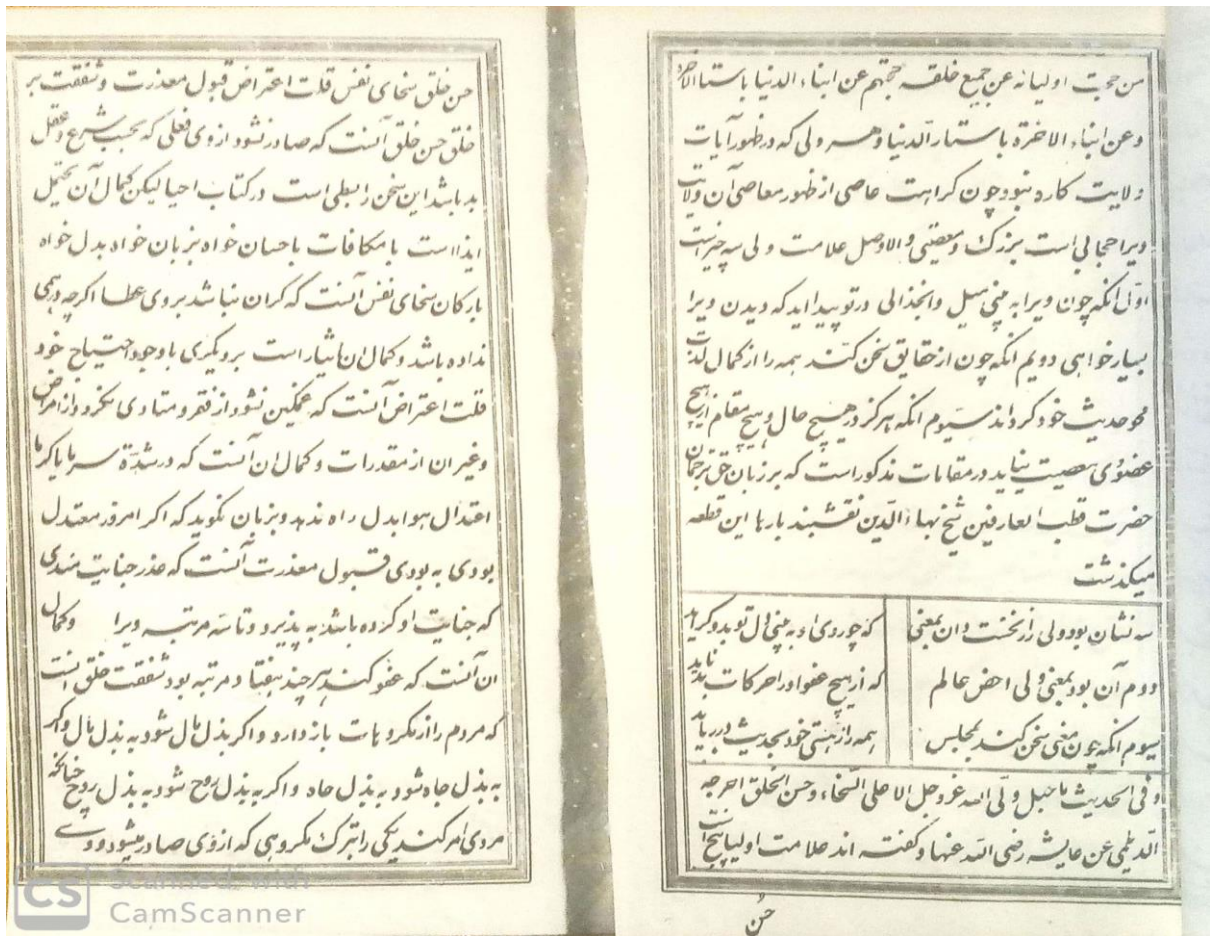 من حجبت اولیائه عن جمیع خلقه حجتهم عن ابناء الدنیا باستار الاخره
وعن ابناء الاخرة باستار الدنیا و هر ولی که در ظهور آیات
ولایت کاره نبود چون کراهت عاصی از ظهور معاصی آن ولایت
ویرا حجابی است بزرگ و معصیتی والاوصل علامت ولی سه چیز است
اوّلی انکه چون ویرا به بینی میل وانجذابی در تو پیدا اید که دیدن ویرا
بسیار خواهی دویم انکه چون از حقایق سخن کند همه را از کمال لذت
محو حدیث خود کرداند سیوم انکه هرکز در هیچ حال و هیچ مقام از هیچ
عضو وی معصیت نیاید در مقامات مذکور است که بر زبان حق ترجمان
حضرت قطب العارفین شیخ بهاء الدّین نقشبند بارها این قطعه
میکذشت
سه نشان بود ولی را نخست دان بمعنی که چو روی او به بینی دل تو بدو کراید
دوم آن بود بمعنی ولی اخص عالم که از هیچ عضو او را حرکات بد نیاید
سیوم انکه چون معنی سخن کند بمجلس همه را ز هستی خود بحدیث در رباید
و فی الحدیث ما جبل ولی الله عزوجل الا علی السّخاء وحسن الخلق اخرجه
الدیلمی عن عایشه رضی الله عنها و کفته اند علامت اولیا پنج است
حسن
حسن خلق سخای نفس قلت اعتراض قبول معذرت و شفقت بر
خلق حسن خلق آنست که صادر نشود از وی فعلی که بحسب شرع و عقل
بد باشد این سخن را بسطی است در کتاب احیا لیکن کمال آن تحمل
ایذا است با مکافات باحسان خواه بزبان خواه بدل خواه
بارکان سخای نفس آنست که کران نباشد بروی عطا اکرچه درهمی
نداده باشد و کمال ان ایثار است بر دیکری با وجود احتیاج خود
قلت اعتراض آنست که غمکین نشود از فقر و متاذی نکردد از امراض
و غیر ان از مقدرات و کمال ان آنست که در شدّة سرما یا کرما
اعتدال هوا بدل راه ندهد و بزبان نکوید که اکر امروز معتدل
بودی به بودی قبول معذرت آنست که عذر جنایت مندی
که جنایت او کرده باشد به پذیرد و تا سه مرتبه ویرا و کمال
ان آنست که عفو کند هر چند هفتاد مرتبه بود شفقت خلق آنست
که مردم را از مکروهات باز دارد و اکر بذل مال شود به بذل مال و اکر
به بذل جاه شود به بذل جاه و اکر به بذل روح شود به بذل روح چنانکه
مروی امر کند یکی را بترک مکروهی که از وی صادر میشود و وی
Scanned with
CS CamScanner